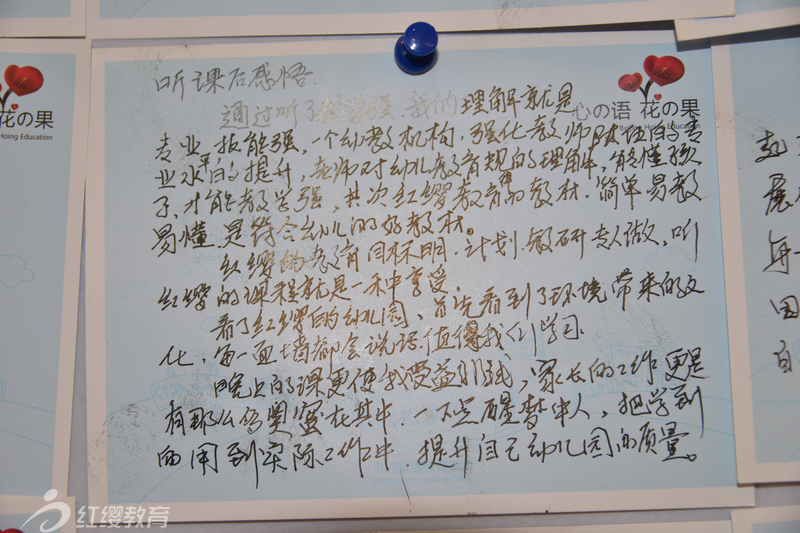 听课后感悟.
通过听了教学强.我的理解就是
心の语 花の果
Hoing Education
花の果
Hoing Education
专业.拔能强.一个幼教机构.强化教师队伍的专
业水平的提升,老师对幼儿教育规律的理解,能懂孩
子.才能教学强,其次红缨教育的教材.简单易教
易懂.是符合幼儿的好教材。
红缨的教育目标明.计划.教研专人做,听
红缨的课程就是一种享受.
看了红缨的幼儿园,首先看到了环境带来的文
化,每一面墙都会说话.值得我们学习.
晚上的课更使我受益,家长的工作更是
有那么多奥蜜在其中.一下点醒梦中人,把学到
的用到实际工作中.提升自己幼儿园的质量。
红缨教育